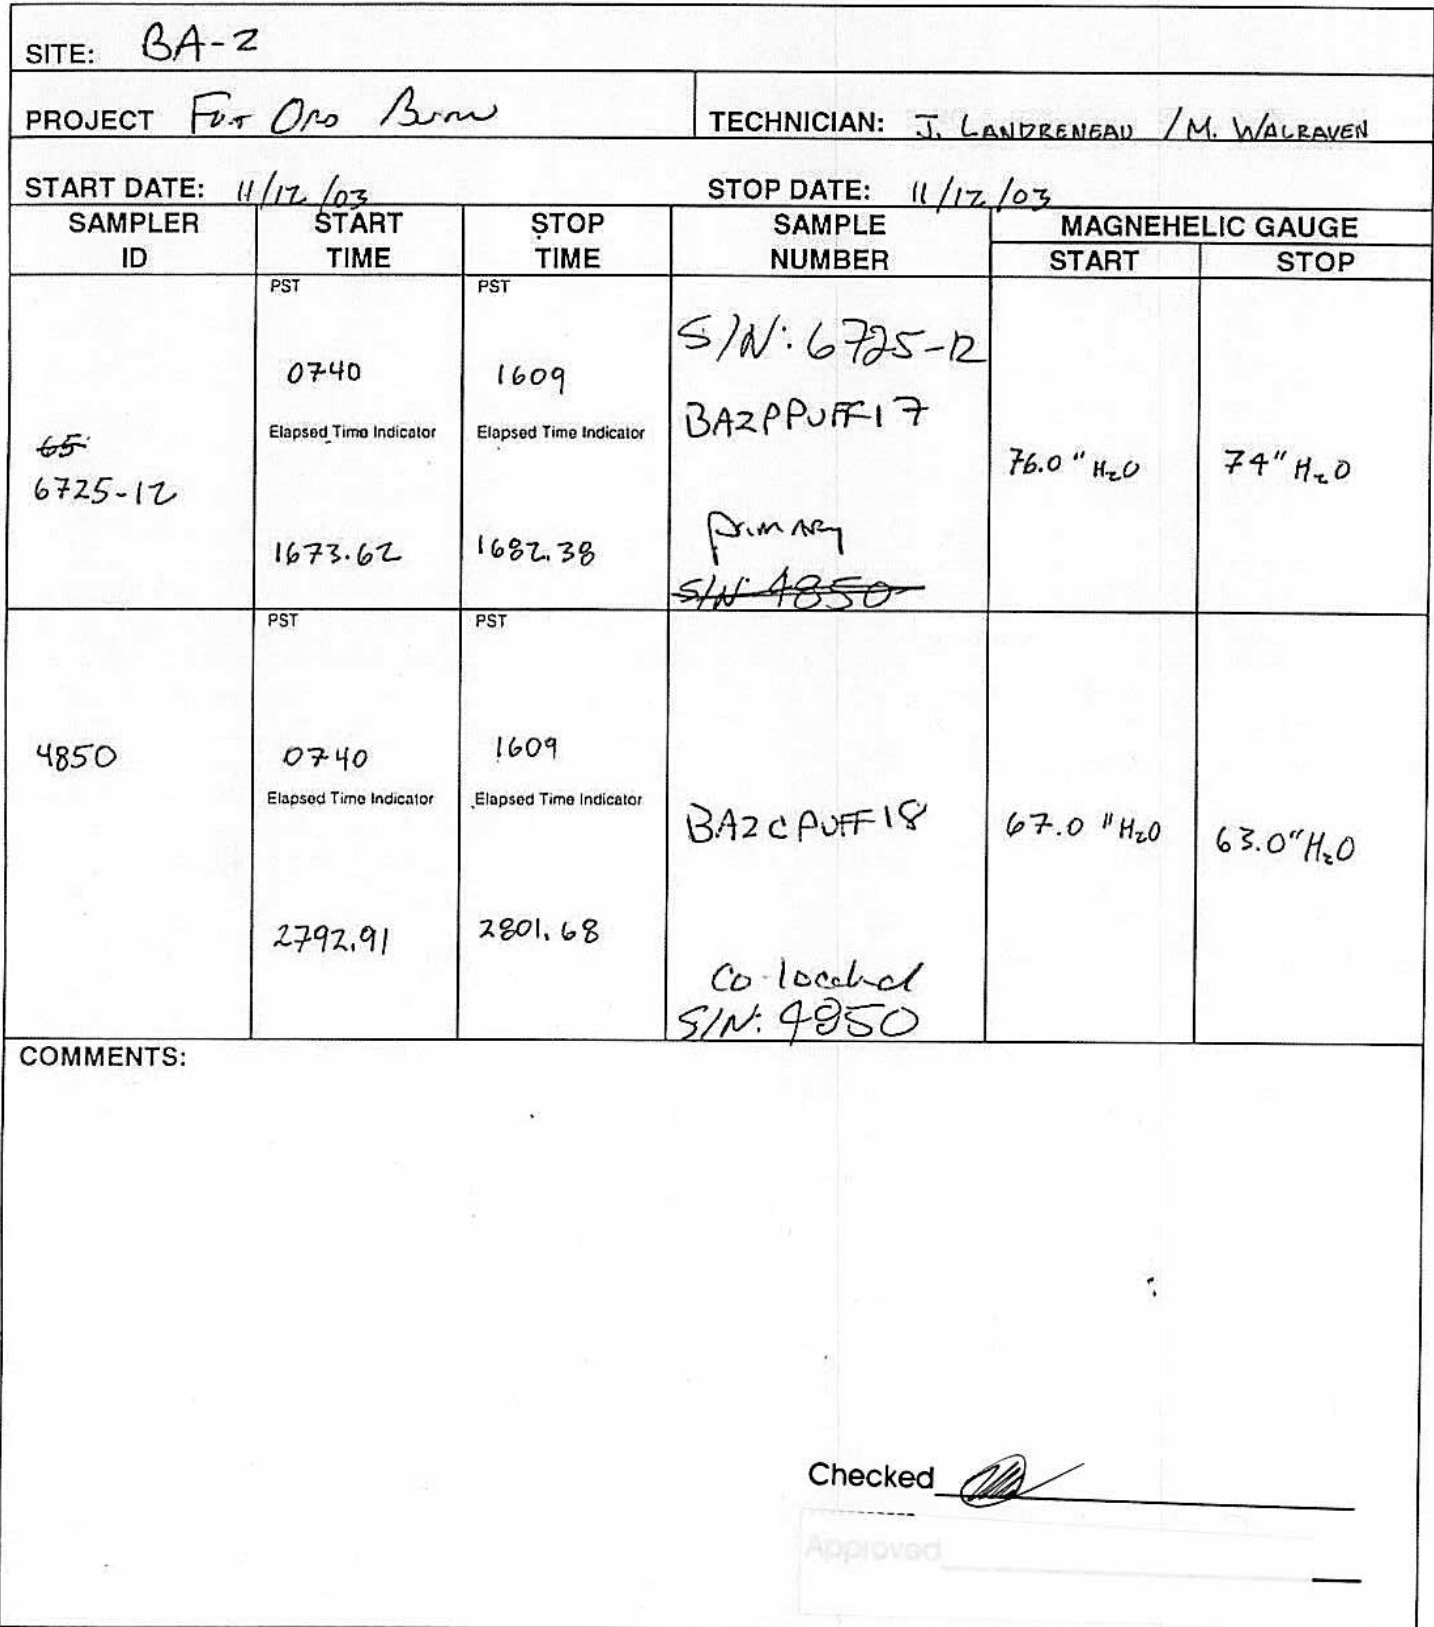 SITE: BA-2
PROJECT Fort Ord Burn
TECHNICIAN: J. LANDRENEAU / M. WALRAVEN
START DATE: 11/12/03
STOP DATE: 11/12/03
SAMPLER ID
START TIME
STOP TIME
SAMPLE NUMBER
MAGNEHELIC GAUGE
START
STOP
65
6725-12
PST
0740
Elapsed Time Indicator
1673.62
PST
1609
Elapsed Time Indicator
1682.38
S/N: 6725-12
BA2PPUFF17
primary
S/N: 4850
76.0" H2O
74" H2O
4850
PST
0740
Elapsed Time Indicator
2792.91
PST
1609
Elapsed Time Indicator
2801.68
BA2CPUFF18
Co-located
S/N: 4850
67.0 "H2O
63.0"H2O
COMMENTS:
Checked
Approved